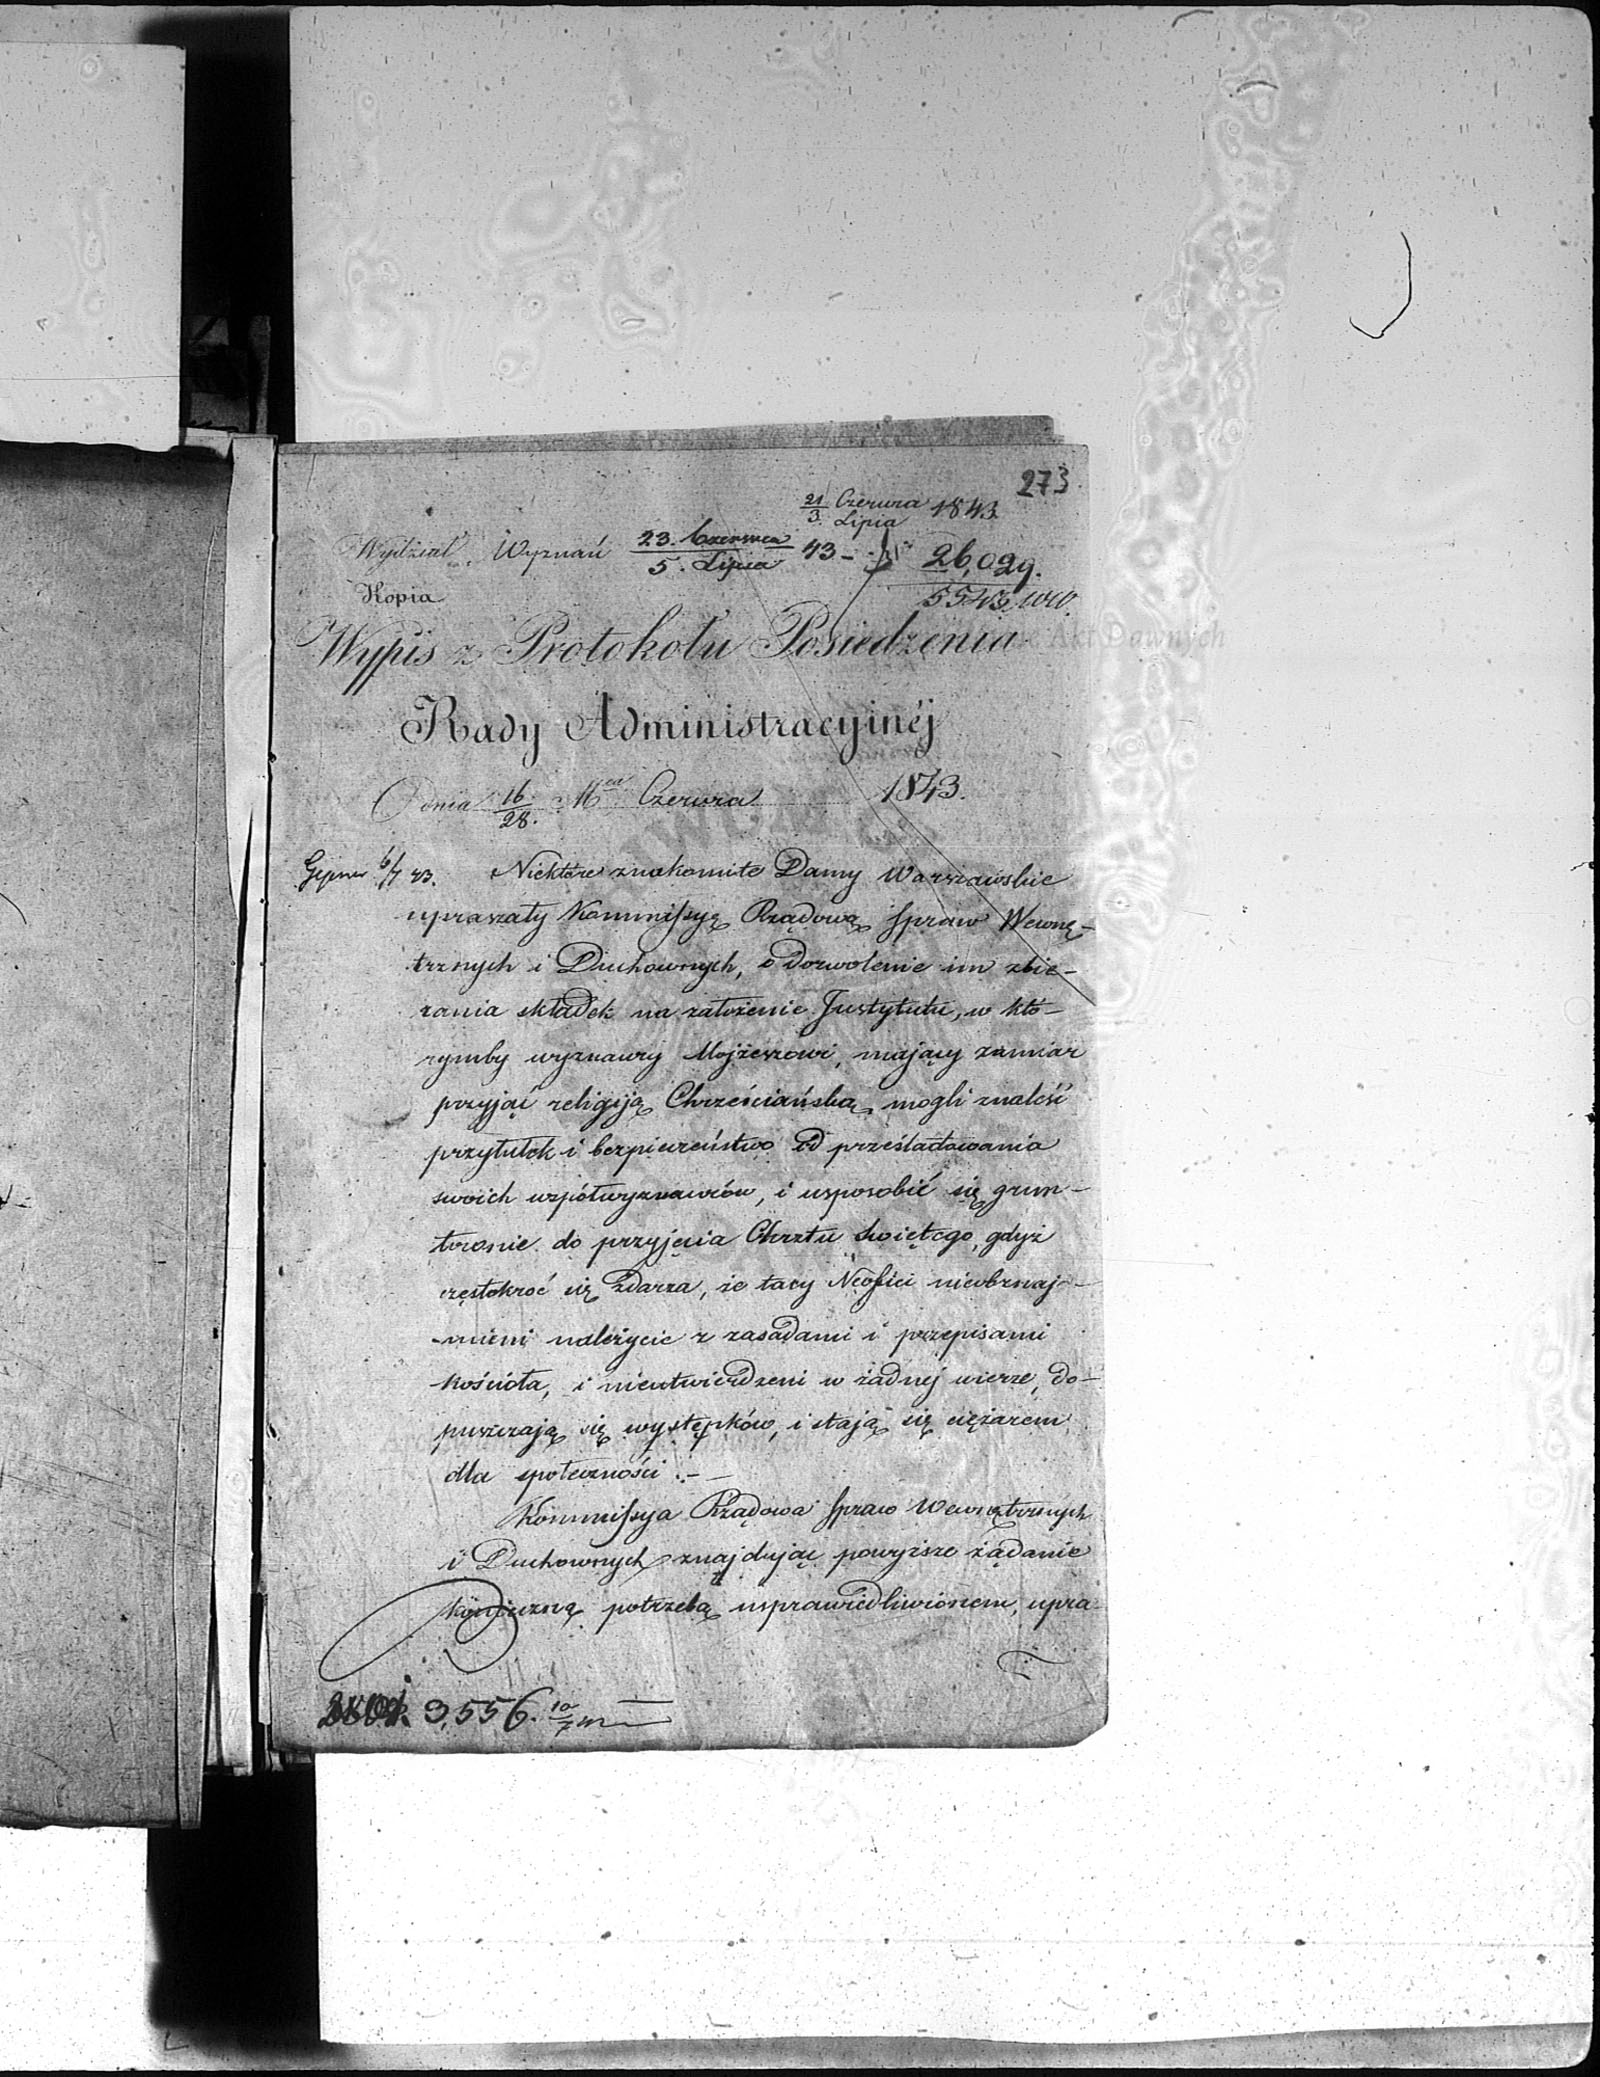 273
21/3. Czerwca/Lipia 1843
Wydział Wyznań 23. Czerwca/5. Lipca 43 – 26,029.
Kopia 5543 WW.
Wypis z Protokołu Posiedzenia
Rady Administracyinéj
Dnia 16/28. Mca Czerwca 1843.
6/7 43. Niektóre znakomite Damy Warszawskie
upraszały Kommissyą Rządową Spraw Wewnę-
trznych i Duchownych, o dozwolenie im zbie-
rania składek na założenie Instytutu, w któ-
rymby wyznawcy Mojżeszowi, mający zamiar
przyjąć religiją Chrześciańską mogli znaleść
przytułek i bezpieczeństwo od prześladowania
swoich współwyznawców, i usposobić się grun-
townie do przyjęcia Chrztu Świętego, gdyż
częstokroć się zdarza, że tacy Neofici nieobznaj-
-mieni należycie z zasadami i przepisami
kościoła, i nieutwierdzeni w żadnej wierze, do-
puszczają się występków, i stają się ciężarem
dla społeczności. –
Kommissya Rządowa Spraw Wewnętrznych
i Duchownych znajdując powyższe żądanie
konieczną potrzebą usprawiedliwionem, upra
3,556. 10/7
Akt Dawnych